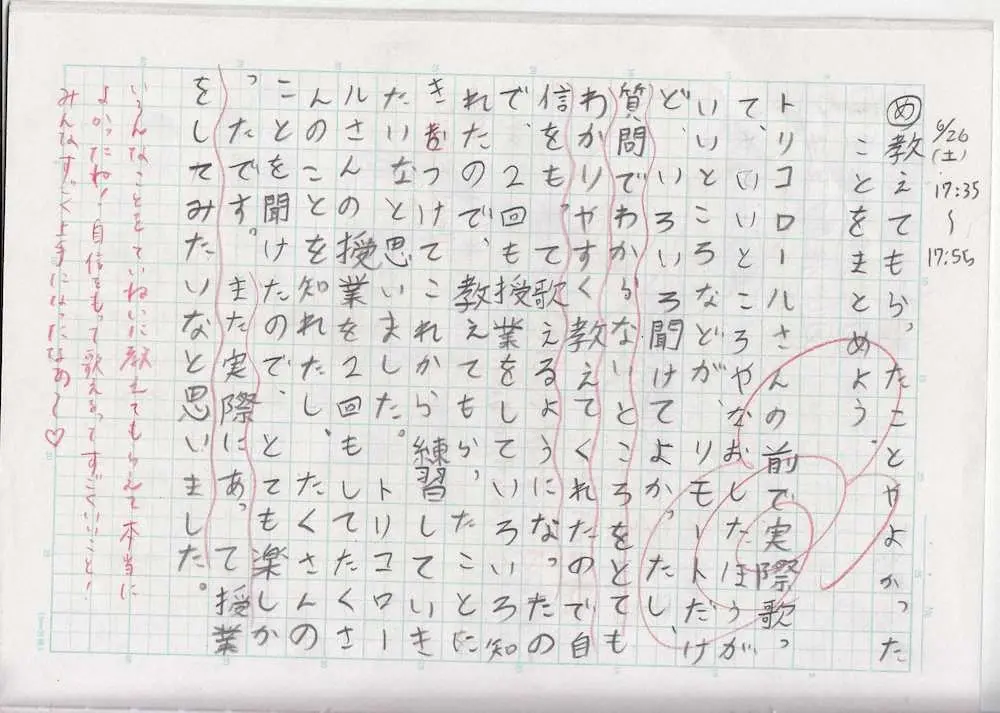 6/26
(土)
17:35
〜
17:55
め教えてもらったことやよかった
ことをまとめよう。
トリコロールさんの前で実際歌っ
て、いいところやなおしたほうが
いいところなどが、リモートだけ
ど、いろいろ聞けてよかったし、
質問でわからないところをとても
わかりやすく教えてくれたので自
信をもって歌えるようになったの
で、2回も授業をしていろいろ知
れたので、教えてもらったことに
きをつけてこれから練習していき
たいなと思いました。トリコロー
ルさんの授業を2回もしてたくさ
んのことを知れたし、たくさんの
ことを聞けたので、とても楽しか
ったです。また実際にあって授業
をしてみたいなと思いました。
いろんなことをていねいに教えてもらえて本当に
よかったね！自信をもって歌えるってすごくいいこと！
みんなすごく上手になったなあ〜♡